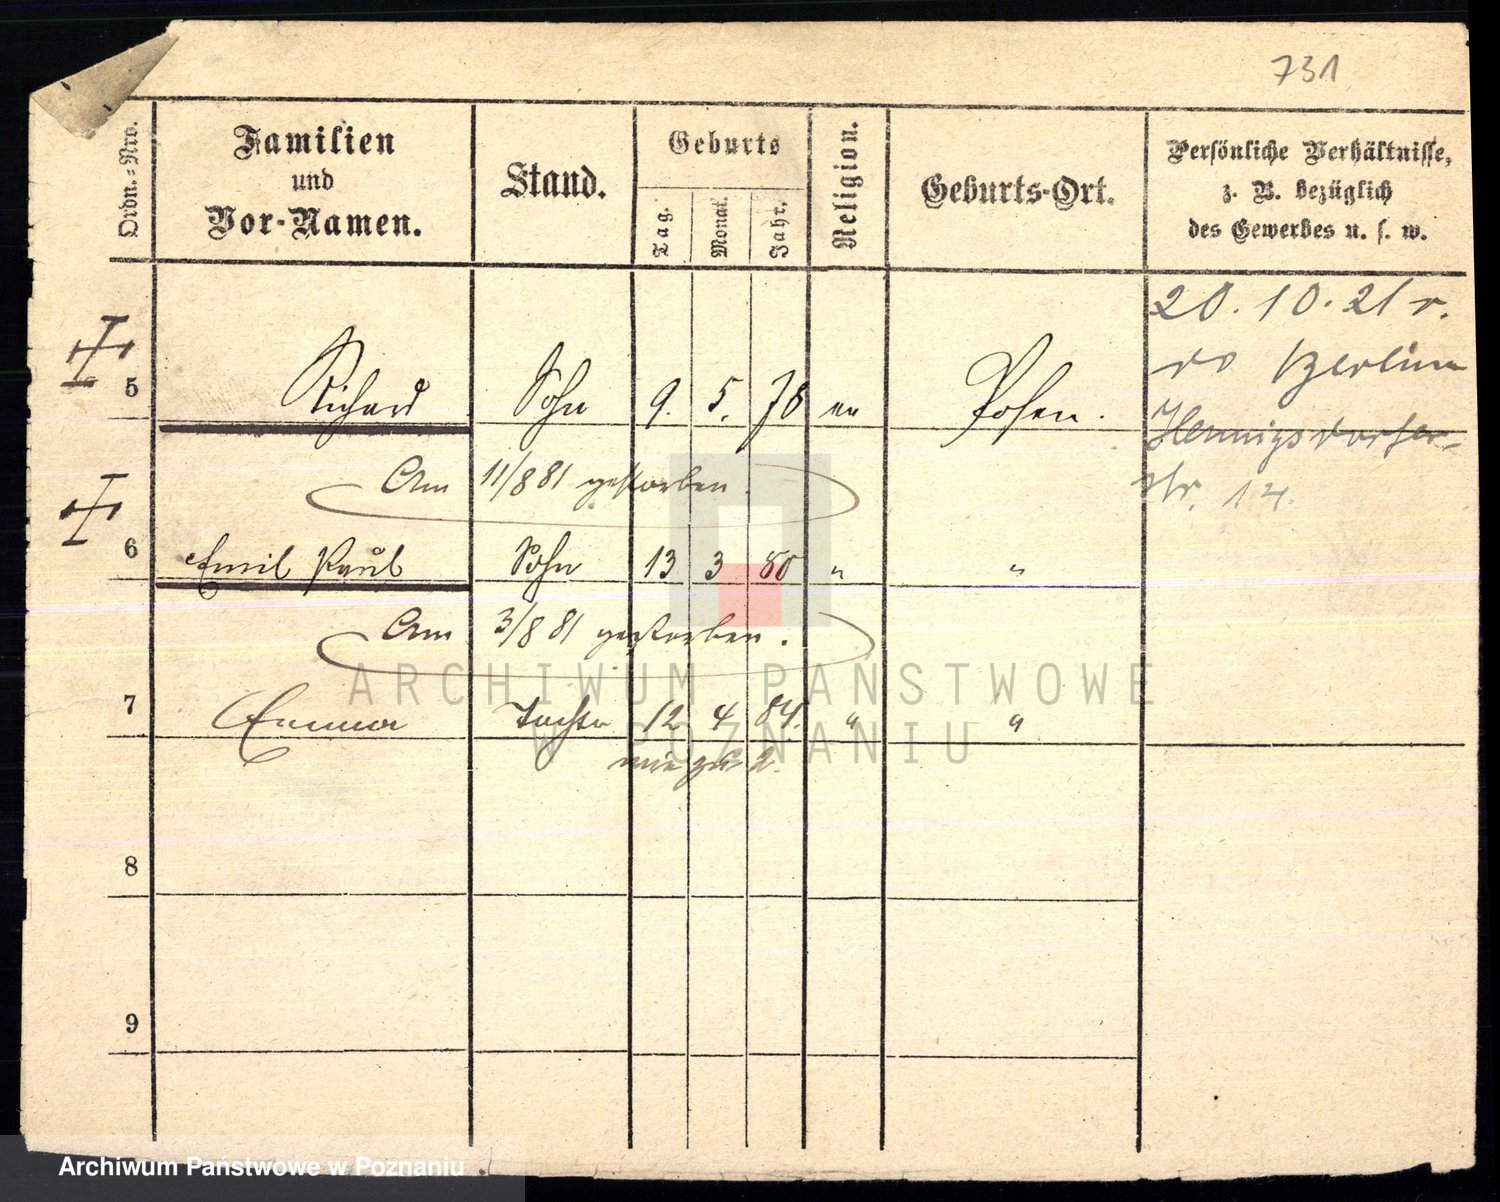 731
Ordn.-Nro.
Familien
und
Vor-Namen.
Stand.
Geburts
Tag.
Monat.
Jahr.
Religion.
Geburts-Ort.
Persönliche Verhältnisse,
z. B. bezüglich
des Gewerbes u. s. w.
20.10.21 r.
do Berlina
Hennigsdorfer-
str. 14.
5 Richard Sohn 9. 5. 78 ev Posen.
Am 11/8 81 gestorben.
6 Emil Paul Sohn 13 3 80 " "
Am 3/8 81 gestorben.
7 Emma Tochter 12 4 84. " "
wie zu 2.
8
9
ARCHIWUM PAŃSTWOWE
W POZNANIU
Archiwum Państwowe w Poznaniu